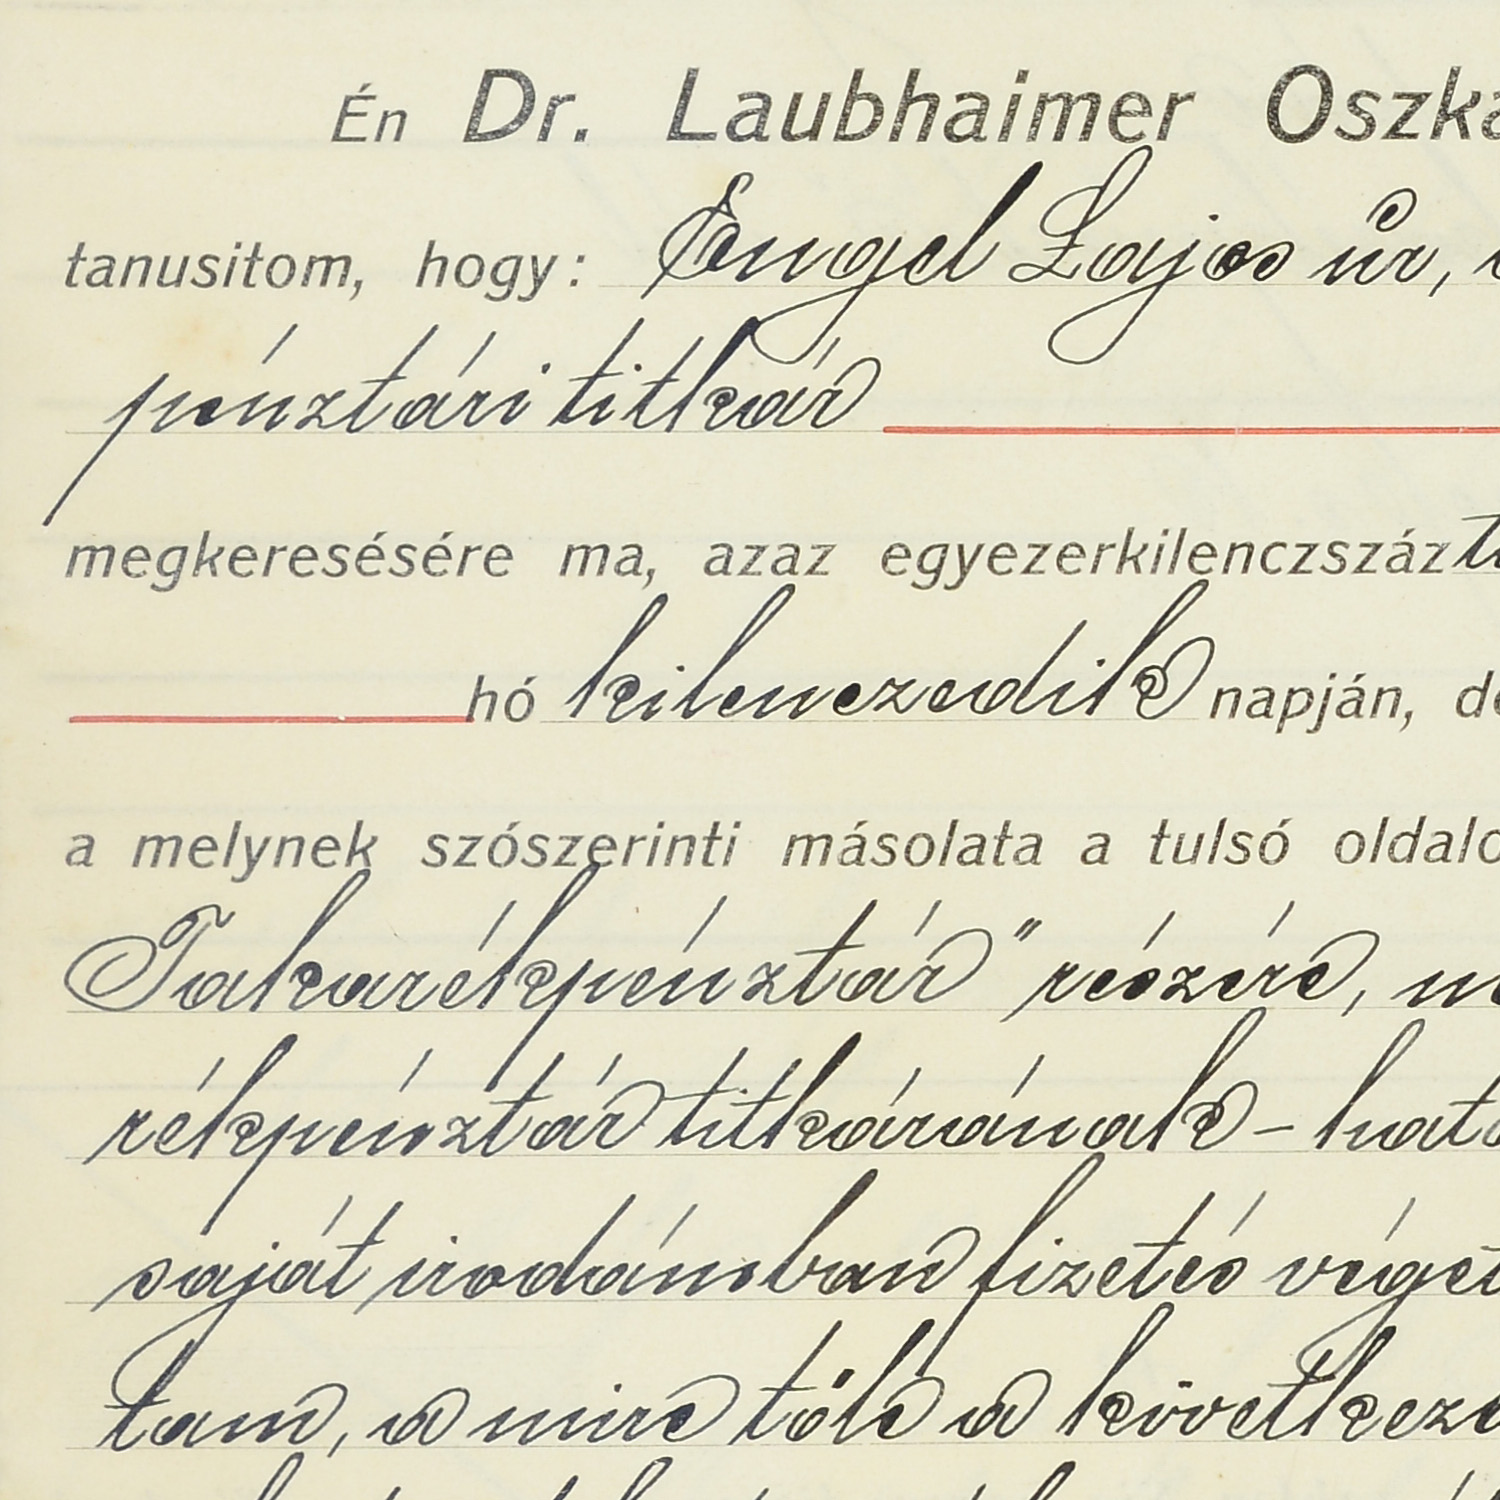 Én Dr. Laubhaimer Oszká
tanusitom, hogy: Engel Lajos úr,
pénztári titkár
megkeresésére ma, azaz egyezerkilenczszáz
hó kilenczedik napján, de
a melynek szószerinti másolata a tulsó oldalo
Takarékpénztár" részére,
rékpénztár titkárának – hat
saját irodámban fizetés véget
tam, a mire tőle a következ